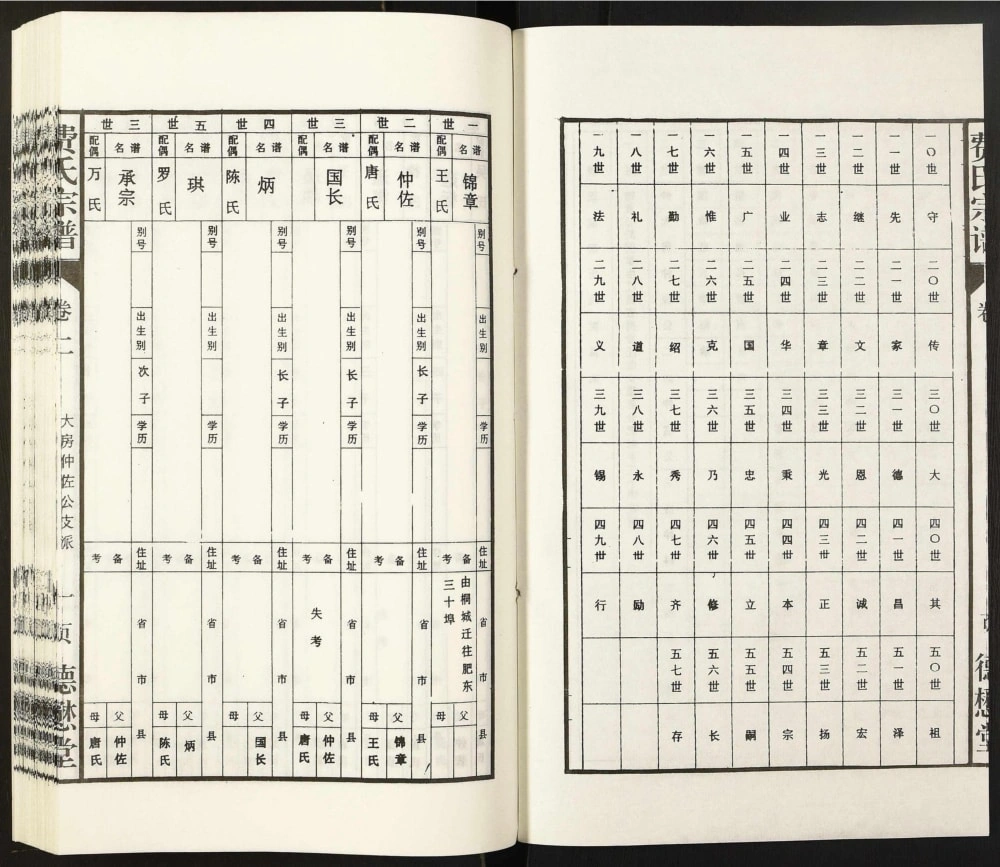 费氏宗谱
卷
德懋堂
一〇世 守
一一世 先
一二世 继
一三世 志
一四世 业
一五世 广
一六世 惟
一七世 勤
一八世 礼
一九世 法
二〇世 传
二一世 家
二二世 文
二三世 章
二四世 华
二五世 国
二六世 克
二七世 绍
二八世 道
二九世 义
三〇世 大
三一世 德
三二世 恩
三三世 光
三四世 秉
三五世 忠
三六世 乃
三七世 秀
三八世 永
三九世 锡
四〇世 其
四一世 昌
四二世 诚
四三世 正
四四世 本
四五世 立
四六世 修
四七世 齐
四八世 励
四九世 行
五〇世 祖
五一世 泽
五二世 宏
五三世 扬
五四世 宗
五五世 嗣
五六世 长
五七世 存
一世
谱名 锦章
配偶 王氏
别号
出生别
学历
住址 省 市 县
备考 由桐城迁往肥东
三十埠
父
母
二世
谱名 仲佐
配偶 唐氏
别号
出生别 长子
学历
住址 省 市 县
备考
父 锦章
母 王氏
三世
谱名 国长
配偶
别号
出生别 长子
学历
住址 省 市 县
备考 失考
父 仲佐
母 唐氏
四世
谱名 炳
配偶 陈氏
别号
出生别 长子
学历
住址 省 市 县
备考
父 国长
母
五世
谱名 琪
配偶 罗氏
别号
出生别
学历
住址 省 市 县
备考
父 炳
母 陈氏
三世
谱名 承宗
配偶 万氏
别号
出生别 次子
学历
住址 省 市 县
备考
父 仲佐
母 唐氏
费氏宗谱
卷二
大房仲佐公支派
一页
德懋堂